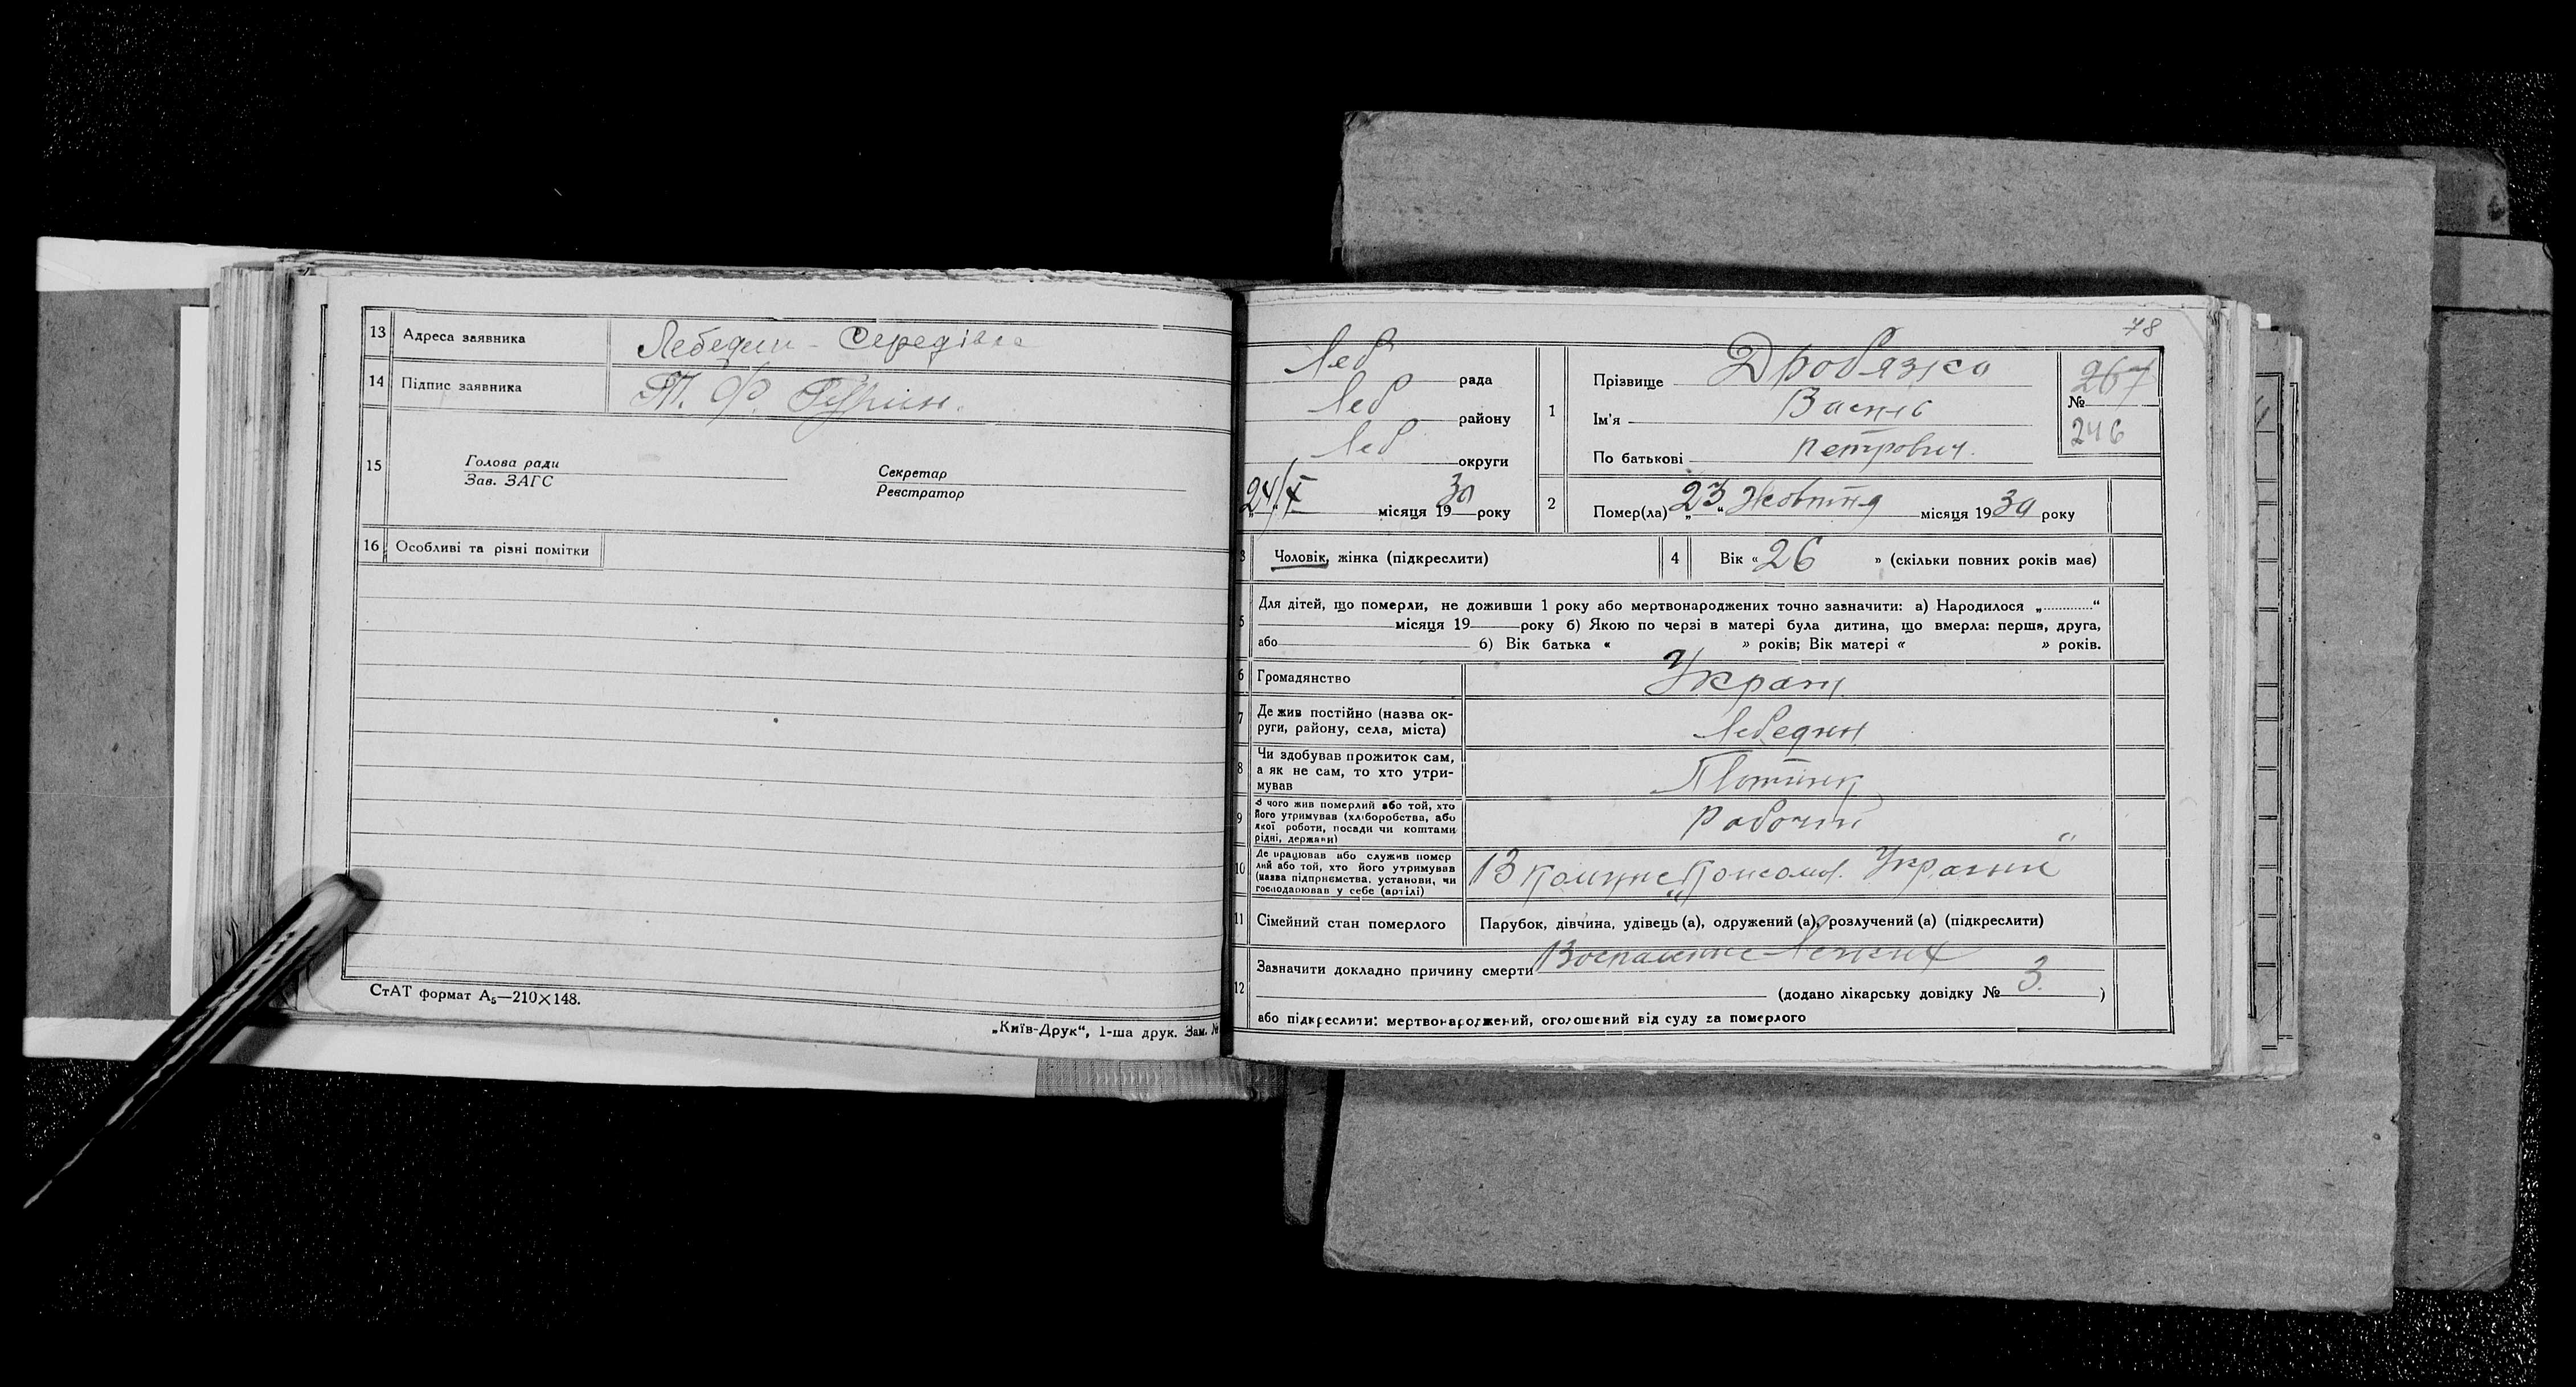 13 Адреса заявника Лебедин - Середівка
14 Підпис заявника Т. Ф.
15 Голова ради Зав. ЗАГС Секретар Реєстратор
16 Особливі та різні помітки
СтАТ формат А5—210×148.
„Київ-Друк“, 1-ша друк. Зам. №
78
Леб рада
Леб району
Леб округи
24/X місяця 1930 року
1 Прізвище Дроб'язко
Ім'я Василь
По батькові Петрович
267
№
246
2 Помер(ла) „23“ Жовтня місяця 1930 року
3 Чоловік, жінка (підкреслити)
4 Вік «26 » (скільки повних років має)
5 Для дітей, що померли, не доживши 1 року або мертвонароджених точно зазначити: а) Народилося „............“
місяця 19 року б) Якою по черзі в матері була дитина, що вмерла: перша, друга,
або б) Вік батька « » років; Вік матері « » років.
6 Громадянство Украін
7 Де жив постійно (назва ок-
руги, району, села, міста) Лебедин
8 Чи здобував прожиток сам,
а як не сам, то хто утри-
мував
9 З чого жив померлий або той, хто
його утримував (хліборобства, або
якої роботи, посади чи коштами
рідні, держави) Рабочий
10 Де працював або служив помер
лий або той, хто його утримував
(назва підприємства, установи, чи
господарював у себе (артілі) В комуне „Консомол. Украини“
11 Сімейний стан померлого Парубок, дівчина, удівець (а), одружений (а), розлучений (а) (підкреслити)
12 Зазначити докладно причину смерти Воспаление Легких
(додано лікарську довідку № 3. )
або підкреслити: мертвонароджений, оголошений від суду за померлого